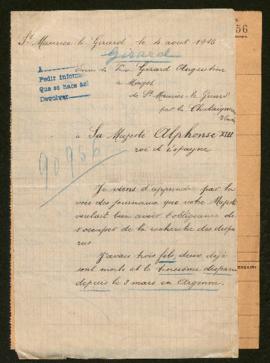 St Maurice le Girard le 4 aout 1916
Girard
A
Pedir inform
Que se hace así
Devolver
56
Girard Augustin
à Mazet
de St Maurice-le-Girard
par la Chataigneraie
à Sa Majesté Alphonse XIII
roi d'Espagne
90956
Je viens d'apprendre par la
voie des journaux que votre Majesté
voulait bien avoir l'obligeance de
s'occuper de la recherche des dispa
rus
J'avais trois fils, deux déjà
sont morts et le troisième disparu
depuis le 3 mars en Argonne.